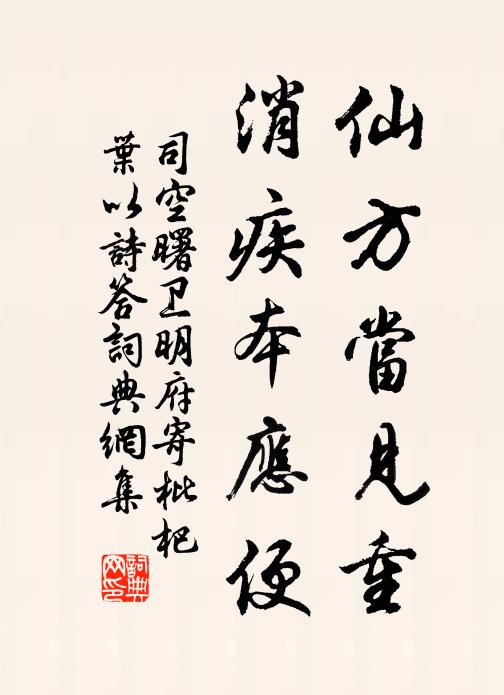 仙方當見重
消疾本應便
司空曙卫明府寄枇杷
葉以詩答詞典網集
詞典
网印